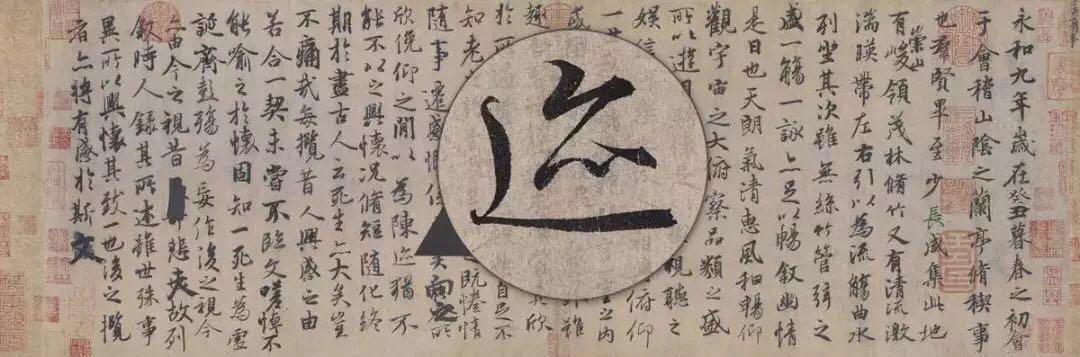 永和九年歲在癸丑暮春之初會
于會稽山陰之蘭亭脩稧事
也羣賢畢至少長咸集此地
有崇山峻領茂林脩竹又有清流激
湍暎帶左右引以為流觴曲水
列坐其次雖無絲竹管弦之
盛一觴一詠亦足以暢敘幽情
是日也天朗氣清惠風和暢仰
觀宇宙之大俯察品類之盛
所以遊視聽之
娛信俯仰
一世之內
或雖
趣其欣
於所自足不
知老既惓情
隨事遷感慨係矣向之所
欣俛仰之閒以為陳迹猶不
能不以之興懷況脩短隨化終
期於盡古人云死生亦大矣豈
不痛哉每攬昔人興感之由
若合一契未嘗不臨文嗟悼不
能喻之於懷固知一死生為虛
誕齊彭殤為妄作後之視今
亦由今之視昔悲夫故列
敘時人錄其所述雖世殊事
異所以興懷其致一也後之攬
者亦將有感於斯文
迹